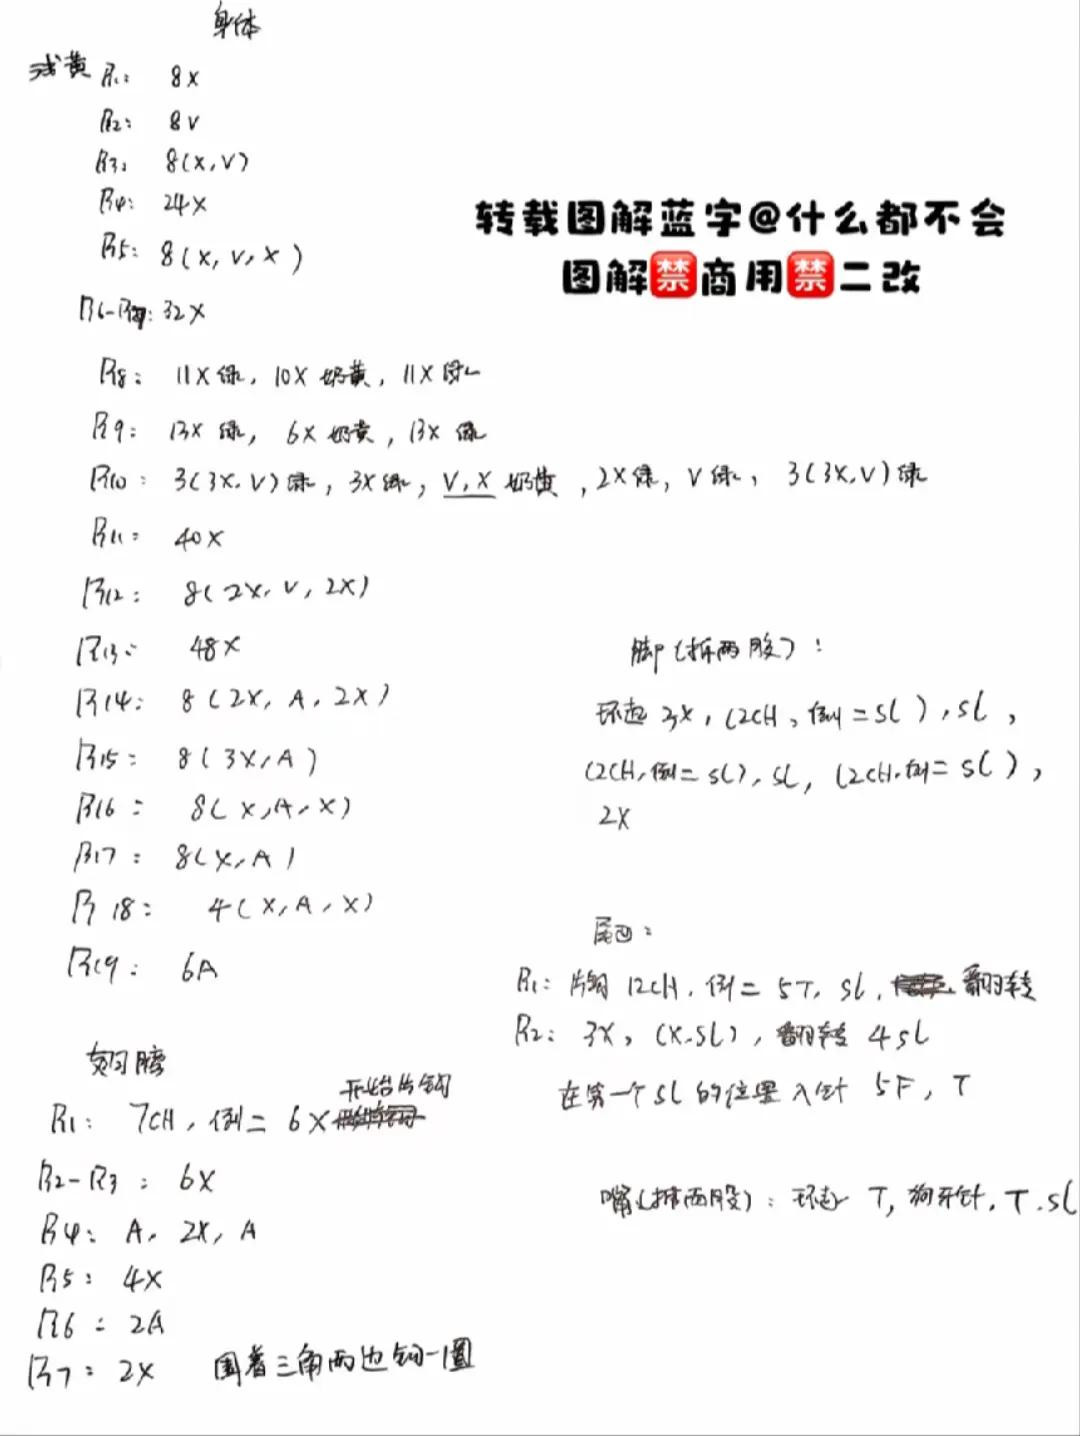 身体
浅黄 R1: 8X
R2: 8V
R3: 8(X,V)
R4: 24X
R5: 8(X,V,X)
R6-R7: 32X
R8: 11X绿, 10X奶黄, 11X绿
R9: 13X绿, 6X奶黄, 13X绿
R10: 3(3X,V)绿, 3X绿, V,X奶黄, 2X绿, V绿, 3(3X,V)绿
R11: 40X
R12: 8(2X,V,2X)
R13: 48X
R14: 8(2X,A,2X)
R15: 8(3X,A)
R16: 8(X,A,X)
R17: 8(X,A)
R18: 4(X,A,X)
R19: 6A
翅膀
R1: 7CH, 倒二 6X 开始片钩
R2-R3: 6X
R4: A, 2X, A
R5: 4X
R6: 2A
R7: 2X 围着三角两边钩一圈
转载图解蓝字@什么都不会
图解禁商用禁二改
脚(拆两股):
环起 3X, (2CH, 倒二SL), SL,
(2CH, 倒二SL), SL, (2CH, 倒二SL),
2X
尾巴:
R1: 片钩 12CH, 倒二 5T, SL, 翻转
R2: 3X, (X,SL), 翻转 4SL
在第一个SL的位置入针 5F, T
嘴(拆两股): 环起 T, 狗牙针, T, SL